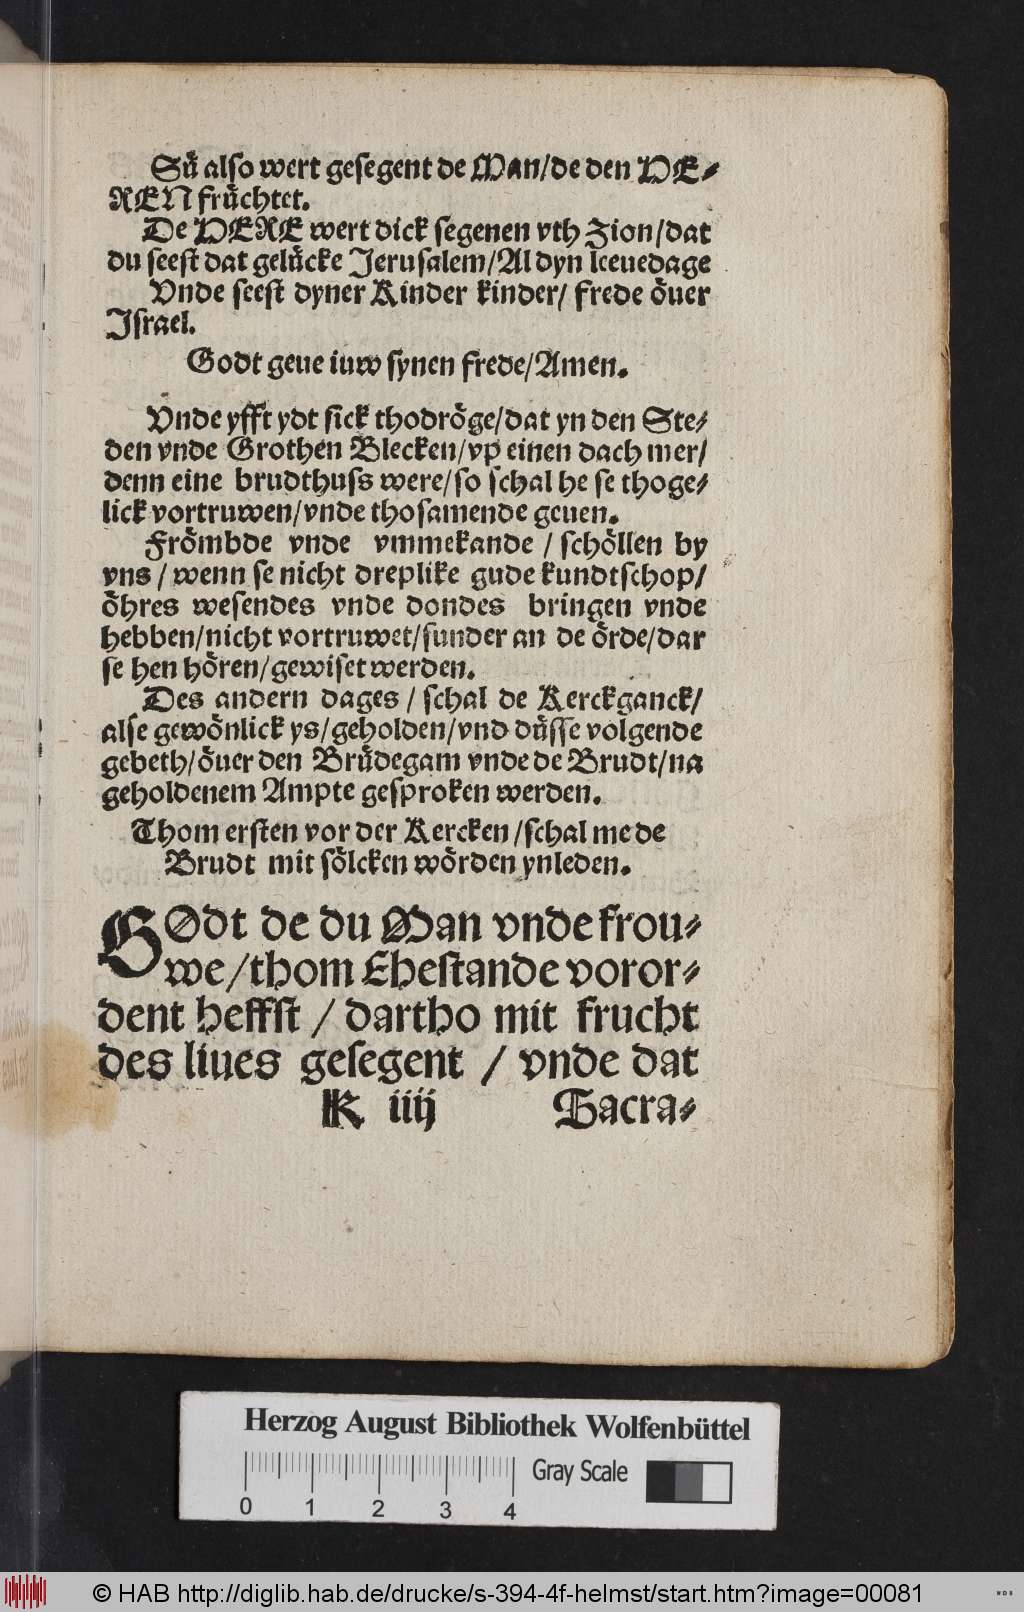 Sü also wert gesegent de Man/de den HE-
REN früchtet.
De HERE wert dick segenen vth Zion/dat
du seest dat gelücke Jerusalem/Al dyn leeuedage
Vnde seest dyner Kinder kinder/ frede öuer
Israel.
Godt geue iuw synen frede/Amen.
Vnde yfft ydt sick thodröge/dat yn den Ste-
den vnde Grothen Blecken/vp einen dach mer/
denn eine brudthuss were/so schal he se thoge-
lick vortruwen/vnde thosamende geuen.
Frömbde vnde vmmekande / schöllen by
vns / wenn se nicht dreplike gude kundtschop/
öhres wesendes vnde dondes bringen vnde
hebben/nicht vortruwet/sunder an de örde/dar
se hen hören/gewiset werden.
Des andern dages / schal de Kerckganck/
alse gewönlick ys/geholden/vnd düsse volgende
gebeth/öuer den Brüdegam vnde de Brudt/na
geholdenem Ampte gesproken werden.
Thom ersten vor der Kercken/schal me de
Brudt mit sölcken wörden ynleden.
GOdt de du Man vnde frou-
we/thom Ehestande voror-
dent heffst / dartho mit frucht
des liues gesegent / vnde dat
K iiij Sacra-
Herzog August Bibliothek Wolfenbüttel
Gray Scale
0 1 2 3 4
© HAB http://diglib.hab.de/drucke/s-394-4f-helmst/start.htm?image=00081